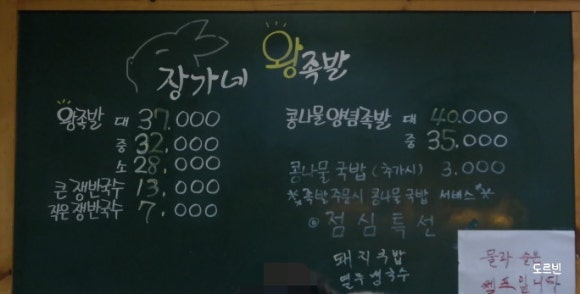 장가네 왕족발
왕족발 대 37.000
중 32.000
소 28.000
큰 쟁반국수 13.000
작은 쟁반국수 7.000
콩나물양념족발 대 40.000
중 35.000
콩나물 국밥 (추가시) 3.000
족발 주문시 콩나물 국밥 서비스
점심특선
돼지국밥
열무냉국수
물과 술은
셀프입니다
도르빈